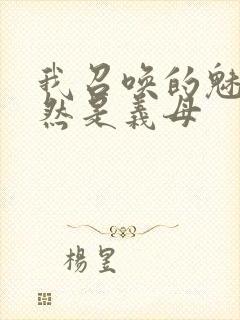 我召唤的魅
然是義母
楊昱